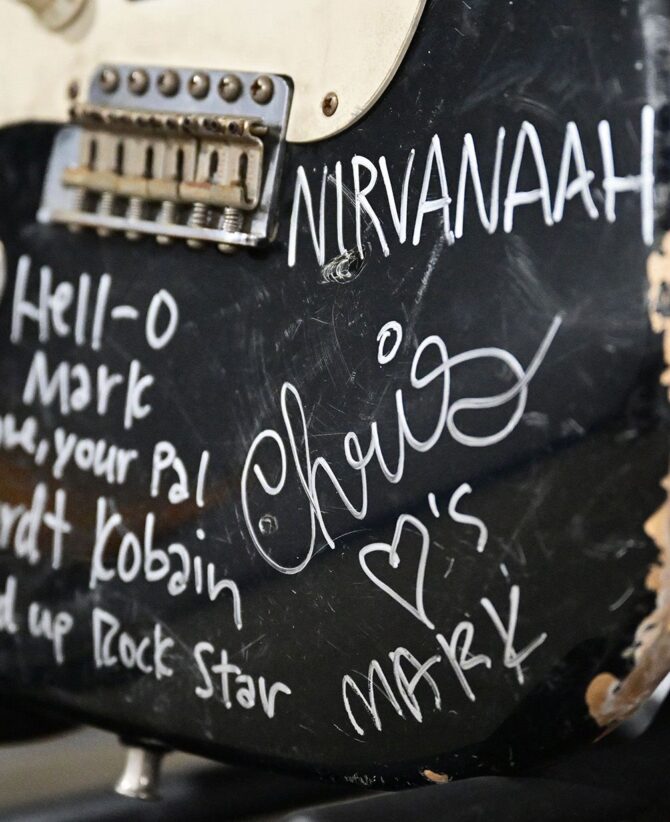 NIRVANAAH
Hell-o
Mark
your Pal
Kobain
up Rock Star
Chris
♥'s
MARK